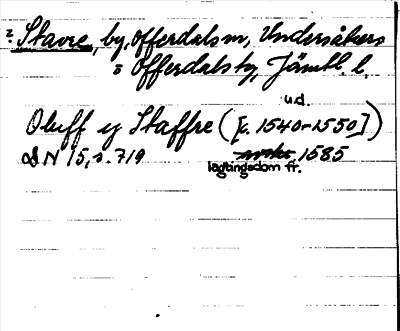 2 Stavre, by, Offerdals sn, Undersåkers
o Offerdals tg, Jämtl. l.
u.d.
Oluff y Staffre ([c. 1540-1550])
DN 15, s. 719 1585
lagtingsdom fr.